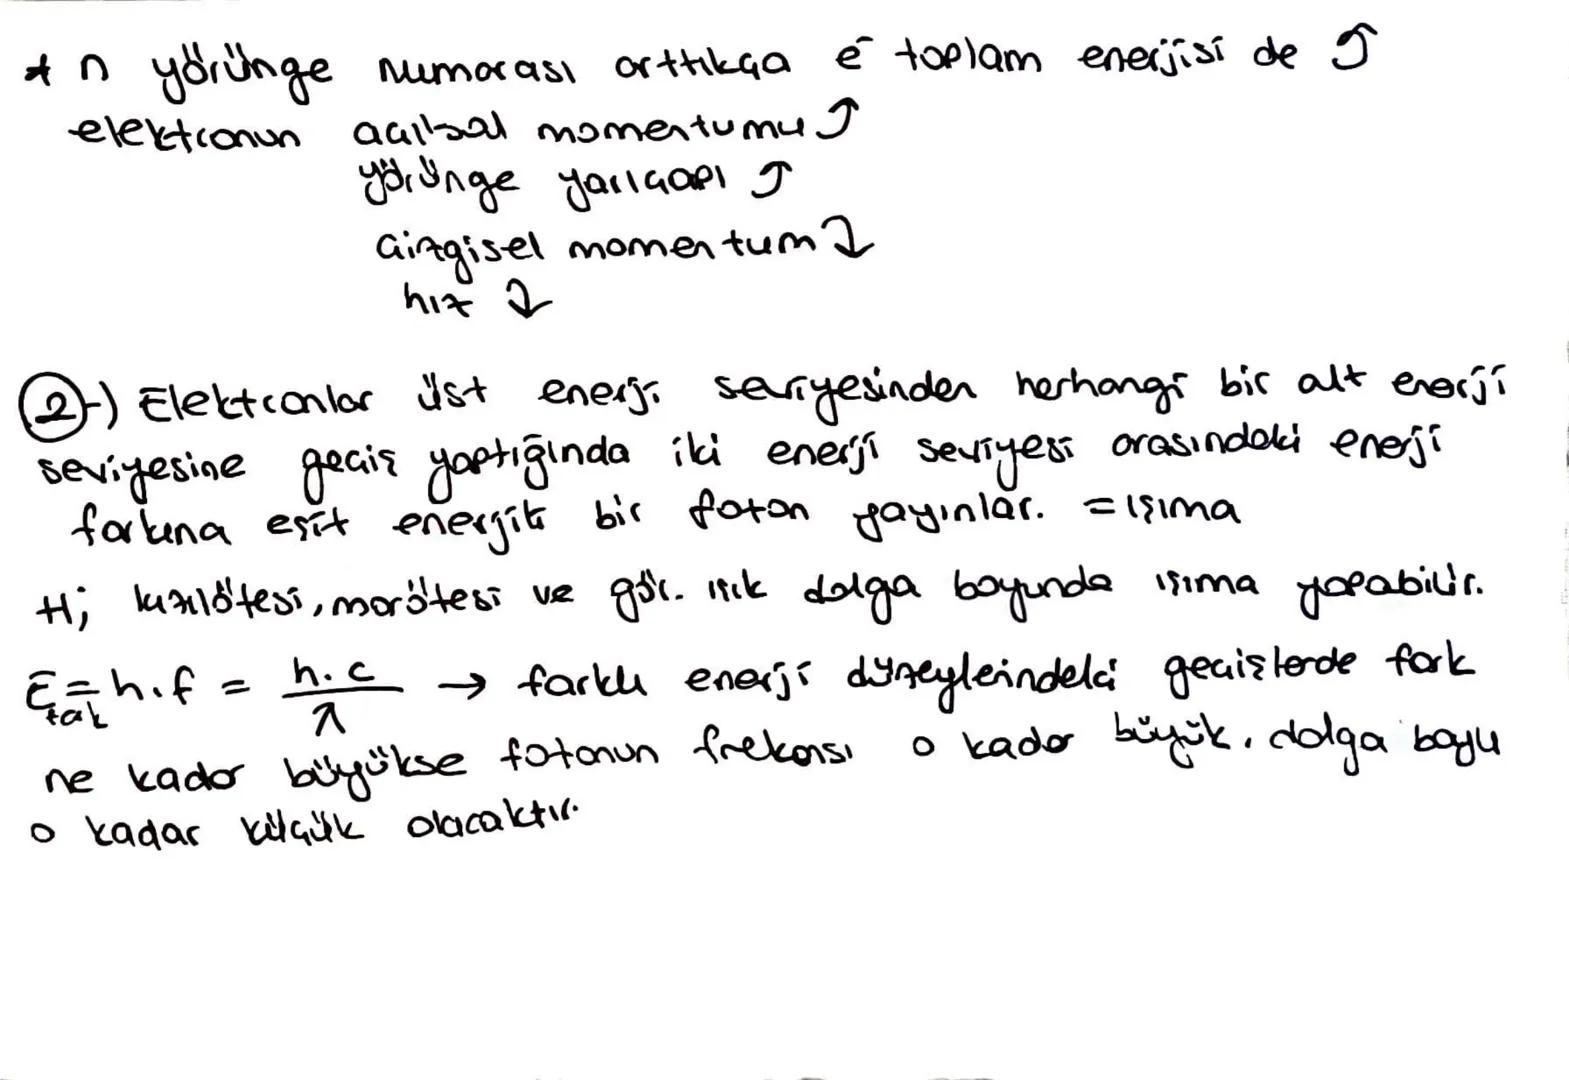 * n yörünge numarası arttıkça e⁻ toplam enerjisi de ↑
elektronun açılsal momentumu ↑
yörünge yarıçapı ↑
çizgisel momentum ↓
hız ↓
2-) Elektronlar üst enerji seviyesinden herhangi bir alt enerji
seviyesine geçiş yaptığında iki enerji seviyesi arasındaki enerji
farkına eşit enerjik bir foton yayınlar. = ışıma
H; kızılötesi, morötesi ve gör. ışık dalga boyunda ışıma yapabilir.
E_fak = h.f = h.c / λ → farklı enerji düzeylerindeki geçişlerde fark
ne kadar büyükse fotonun frekansı o kadar büyük, dalga boyu
o kadar küçük olacaktır.